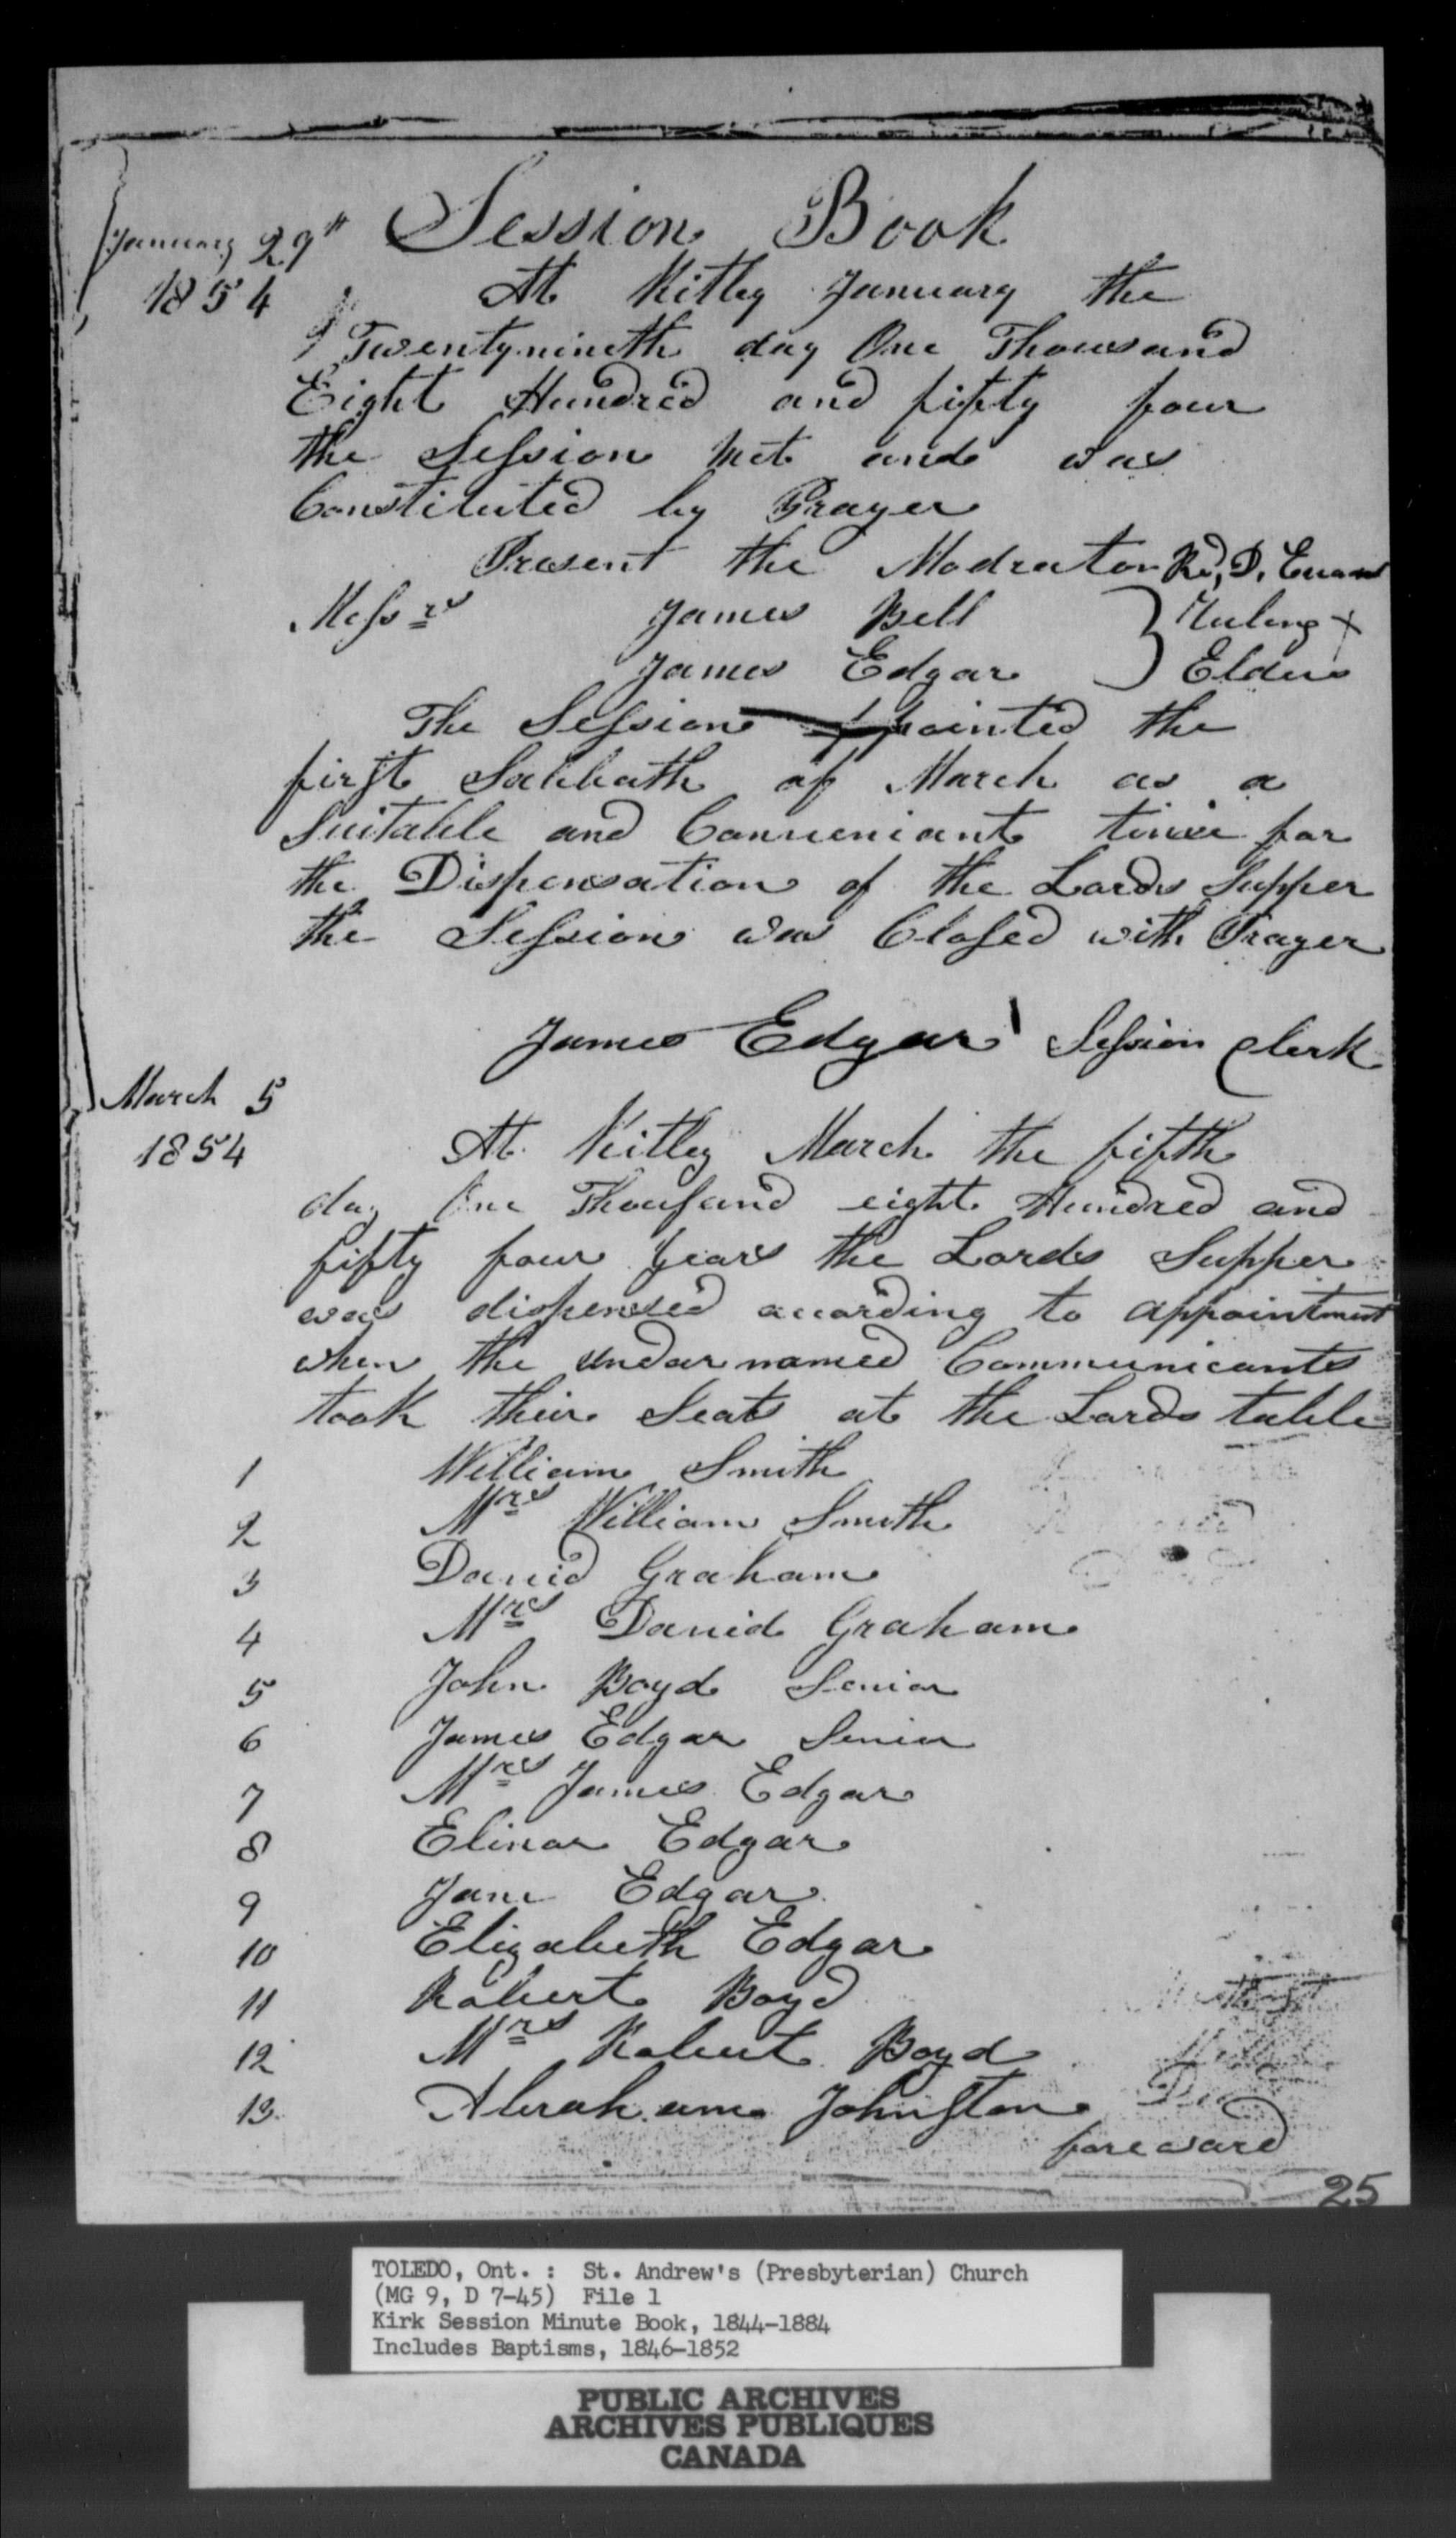 January 29th Session Book
1854 At Kitley January the
Twentynineth day One Thousand
Eight Hundred and fifty four
the Session Met and was
Constituted by Prayer
Present the Modrator Rd, D. Evans
Messrs James Bell } Ruling +
James Edgar } Elders
The Session appointed the
first Sabbath of March as a
Suitable and Conveniant time for
the Dispensation of the Lords Supper
the Session was Closed with Prayer
James Edgar Session Clerk
March 5
1854 At Kitley March the fifth
day One Thousand eight Hundred and
fifty four years the Lords Supper
was dispensed according to appointment
when the undernamed Communicants
took their Seats at the Lords table
1 William Smith
2 Mrs William Smith
3 David Graham
4 Mrs David Graham
5 John Boyd Senior
6 James Edgar Senior
7 Mrs James Edgar
8 Elinor Edgar
9 Jane Edgar
10 Elizabeth Edgar
11 Robert Boyd
12 Mrs Robert Boyd
13 Abraham Johnston
foreward
25
TOLEDO, Ont. : St. Andrew's (Presbyterian) Church
(MG 9, D 7-45) File 1
Kirk Session Minute Book, 1844-1884
Includes Baptisms, 1846-1852
PUBLIC ARCHIVES
ARCHIVES PUBLIQUES
CANADA